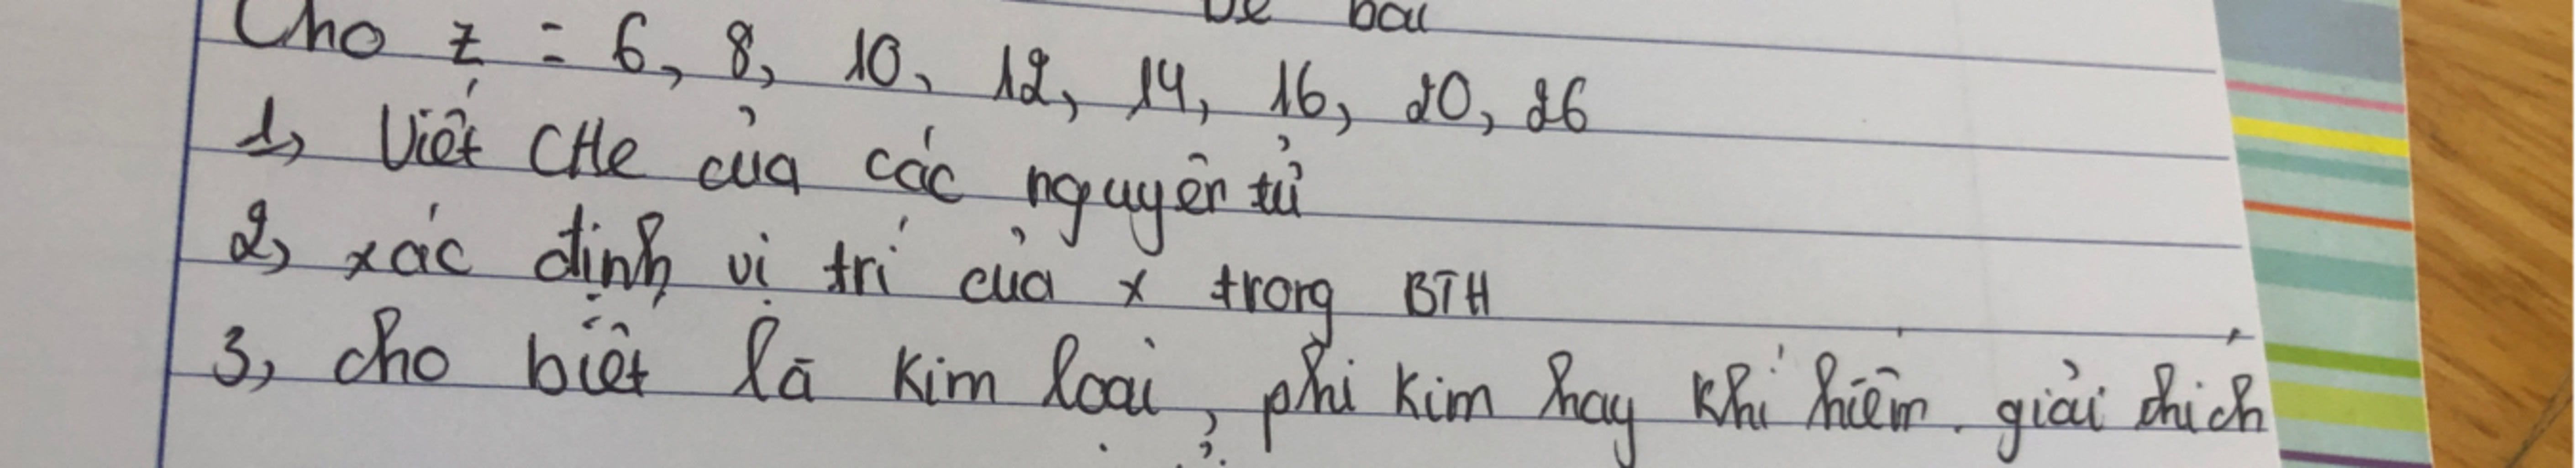 Đề bài
Cho z = 6, 8, 10, 12, 14, 16, 20, 26
1, Viết CHe của các nguyên tử
2, xác định vị trí của x trong BTH
3, cho biết là kim loại, phi kim hay khí hiếm. giải thích